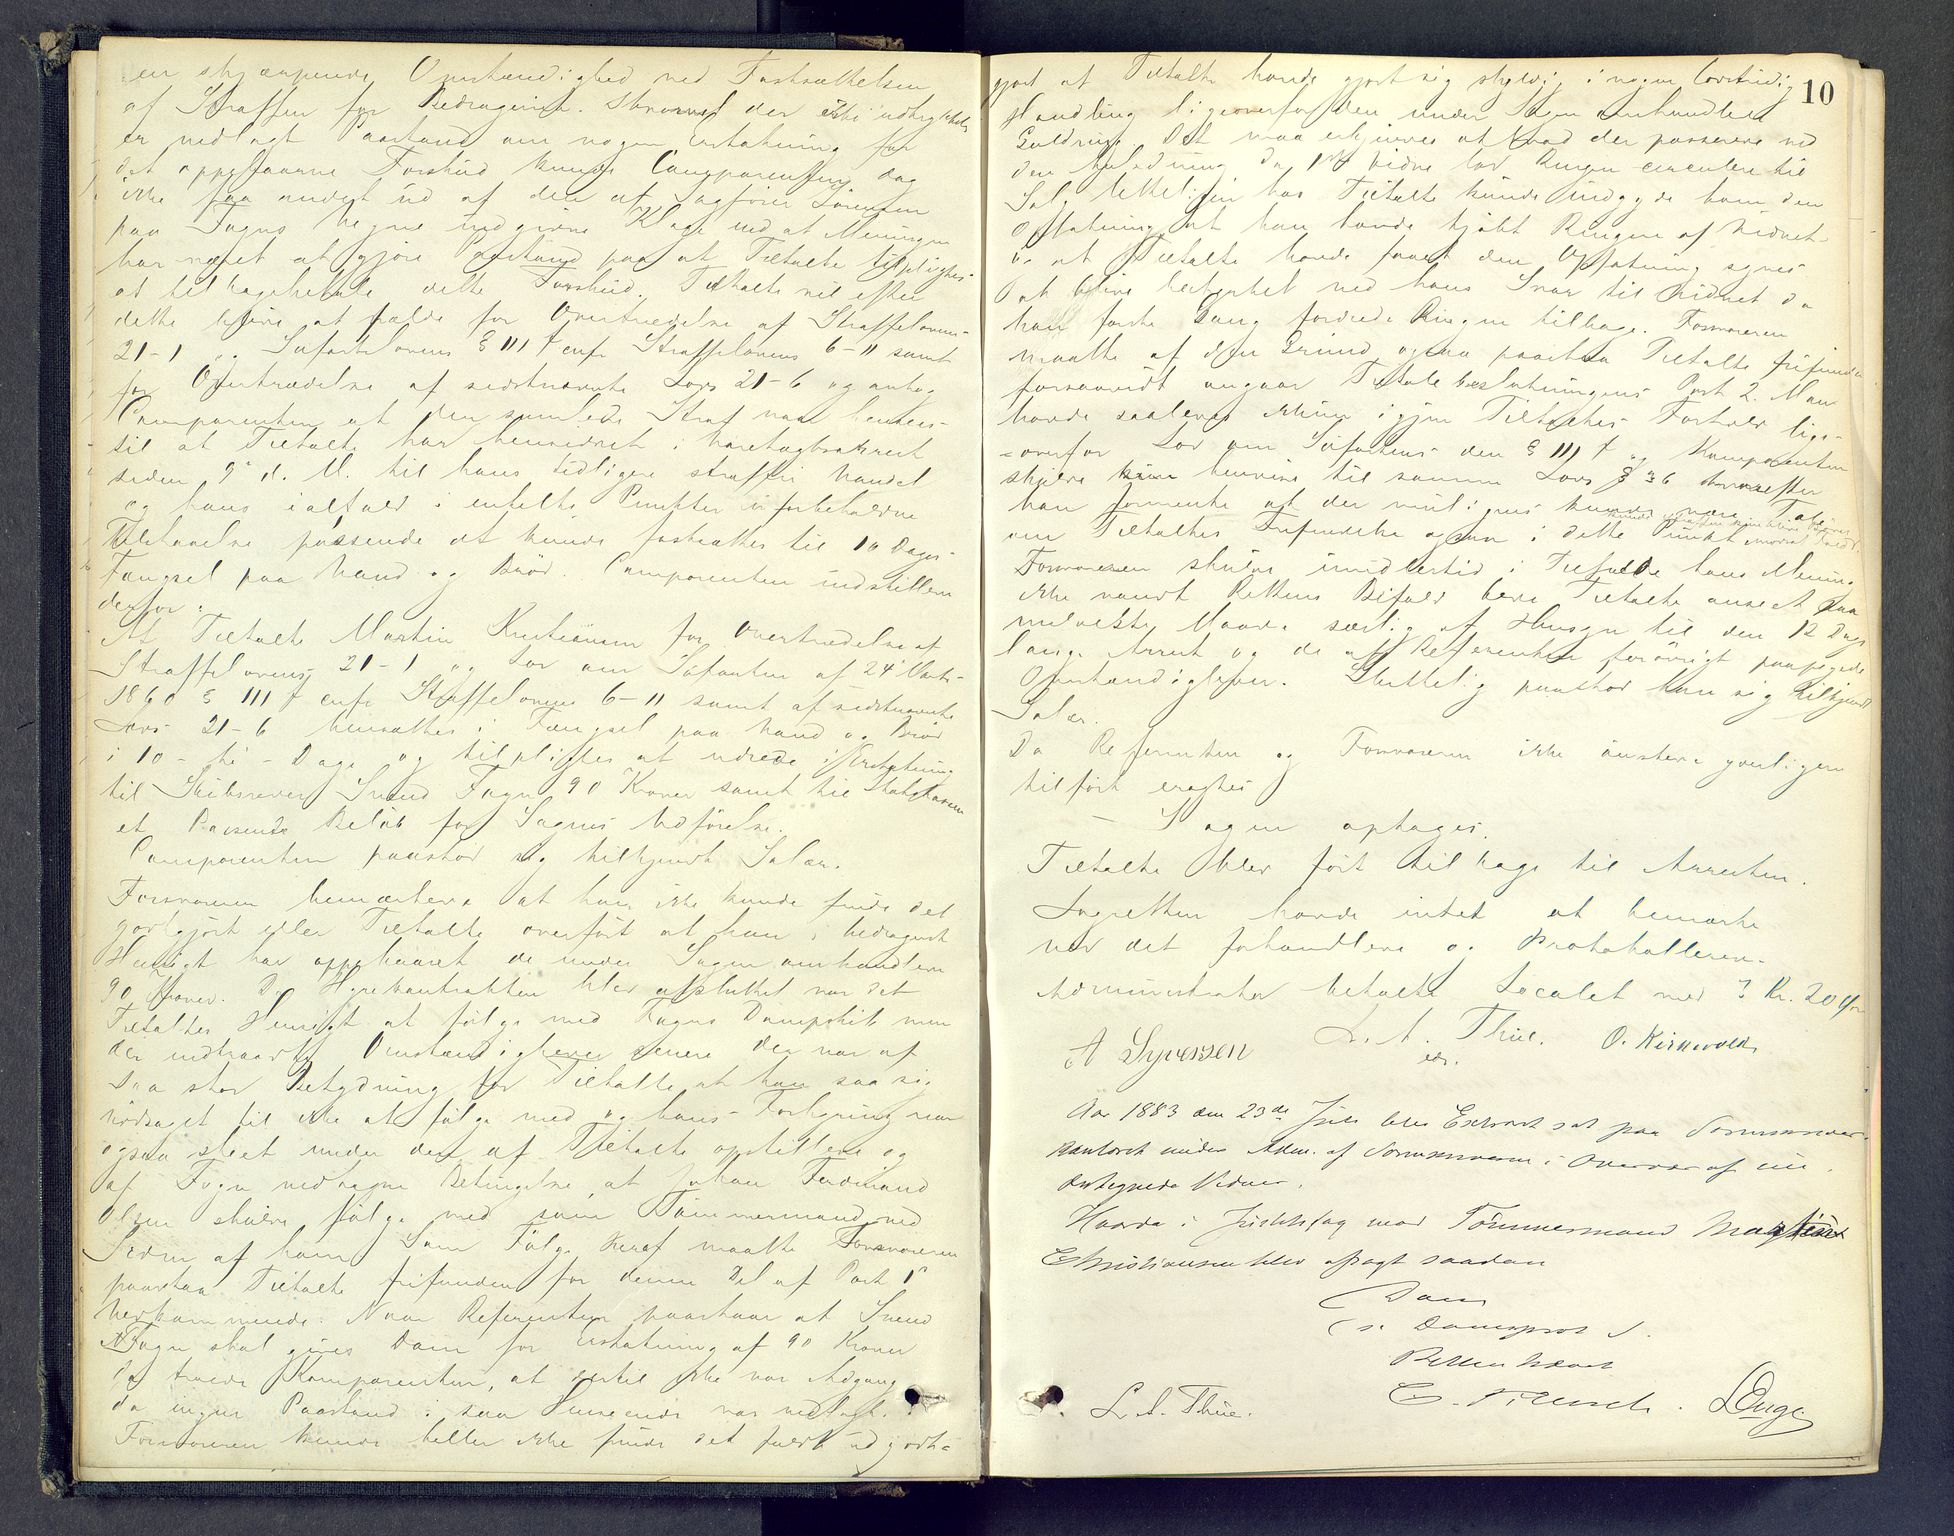 en skjærpende Omstændighed ved Fastsættelsen
af Straffen for Bedrageriet. Skjønt der ikke udtrykkelig
er nedlagt Paastand om nogen Erstatning for
det oppebaarne Forskud kunde Comparenten dog
ikke faa andet ud af den af Sagfører Sørensen
paa Fagns Vegne indgivne Klage end at Meningen
har været at gjøre Paastand paa at Tiltalte tilpligtes
at tilbagebetale dette Forskud. Tiltalte vil efter
dette blive at fælde for Overtrædelse af Straffelovens
21-1 og Søfartslovens § 111 f cnfr Straffelovens 6-11 samt
for Overtrædelse af sidstnævnte Lovs 21-6 og antog
Comparenten at den samlede Straf med Hensyn
til at Tiltalte har hensiddet i Varetægtsarrest
siden 9de d. M. til hans tidligere straffri Vandel
og hans ialfald i enkelte Punkter uforbeholdne
Tilstaaelse passende at kunde fastsættes til 10 Dages
Fængsel paa Vand og Brød. Comparenten indstillede
derfor:
At Tiltalte Martin Kristiansen for Overtrædelse af
Straffelovens 21-1 og Lov om Søfarten af 24 Marts
1860 § 111 f cnfr Straffelovens 6-11 samt af sidstnævnte
Lovs 21-6 hensættes i Fængsel paa Vand og Brød
i 10 - ti - Dage og tilpligtes at udrede i Erstatning
til Skibsreder Svend Fagn 90 Kroner samt til Statskassen
et Passende Beløb for Sagens Udførelse.
Comparenten paastod sig tilkjendt Salær.
Forsvareren bemærkede at han ikke kunde finde det
godtgjort eller Tiltalte overført at han i bedragersk
Hensigt har oppebaaret de under Sagen omhandlede
90 Kroner. Da Hyrekontrakten blev afsluttet var det
Tiltaltes Hensigt at følge med Fagns Dampskib men
der indtraadte Omstændigheder senere der var af
saa stor Betydning for Tiltalte at han saa sig
nødsaget til ikke at følge med og hans Forhyring var
ogsaa skeet under den af Tiltalte opstillede og
af Fagn vedtagne Betingelse at Johan Ferdinand
Olsen skulde følge med som Tømmermand ved
Siden af ham. Som Følge heraf maatte Forsvareren
paastaa Tiltalte frifunden for denne Del af Post 1
vedkommende. Naar Referenten paastaar at Svend
Fagn skal gives Dom for Erstatning af 90 Kroner
da troede Komparenten, at dertil ikke var Adgang
da ingen Paastand i saa Henseende var nedlagt.
Forsvareren kunde heller ikke finde det fuldt ud godt-
10
gjort at Tiltalte havde gjort sig skyldig i nogen lovstridig
Handling ligeoverfor den under Sagen omhandlede
Guldring. Det maa erkjendes at hvad der passerede ved
den Anledning da 1ste Vidne lod Ringen circulere til
Salg letteligen hos Tiltalte kunde indgyde ham den
Opfatning at han havde kjøbt Ringen af Vidnet
og at Tiltalte havde faaet den Opfatning synes
at blive bestyrket ved hans Svar til Vidnet da
han første Gang fordrede Ringen tilbage. Forsvareren
maatte af den Grund ogsaa paastaa Tiltalte frifunden
forsaavidt angaar Tiltalebeslutningens Post 2. Man
havde saaledes kun igjen Tiltaltes Forhold lige-
-overfor Lov om Søfartens den § 111 f og Komparenten
skulde kun henvise til samme Lovs § 36 hvorefter
han formente at der muligens kunde være Tale
om Tiltaltes Frifindelse ogsaa i dette Punkt
Forsvareren skulde imidlertid i Tilfælde hans Mening
ikke vandt Rettens Bifald bede Tiltalte anseet paa
mildeste Maade særlig af Hensyn til den 12 Dage
lange Arrest og de af Referenten forøvrigt paapegede
Omstændigheder. Sluttelig paastod han sig tilkjendt
Salær.
Da Referenten og Forsvareren ikke ønskede yderligere
tilført eragtes
- Sagen optages.
Tiltalte blev ført tilbage til Arresten.
Lagretten havde intet at bemærke
ved det forhandlede og Protokollerede.
Administrator betalte Localet med 3 Kr. 20 Øre
A Syversen L. A. Thue. O. Kirkevold
edr.
Aar 1883 den 23de Juli blev Extraret sat paa Sorenskriver-
kontoret under Adm. af Sorenskriveren i Overvær af un-
dertegnede Vidner.
Hvorda i Justitssag mod Tømmermand Martin
Christiansen blev afsagt saadan
Dom
s. Domsprot. 1.
Retten hævet
L. A. Thue. L Enge